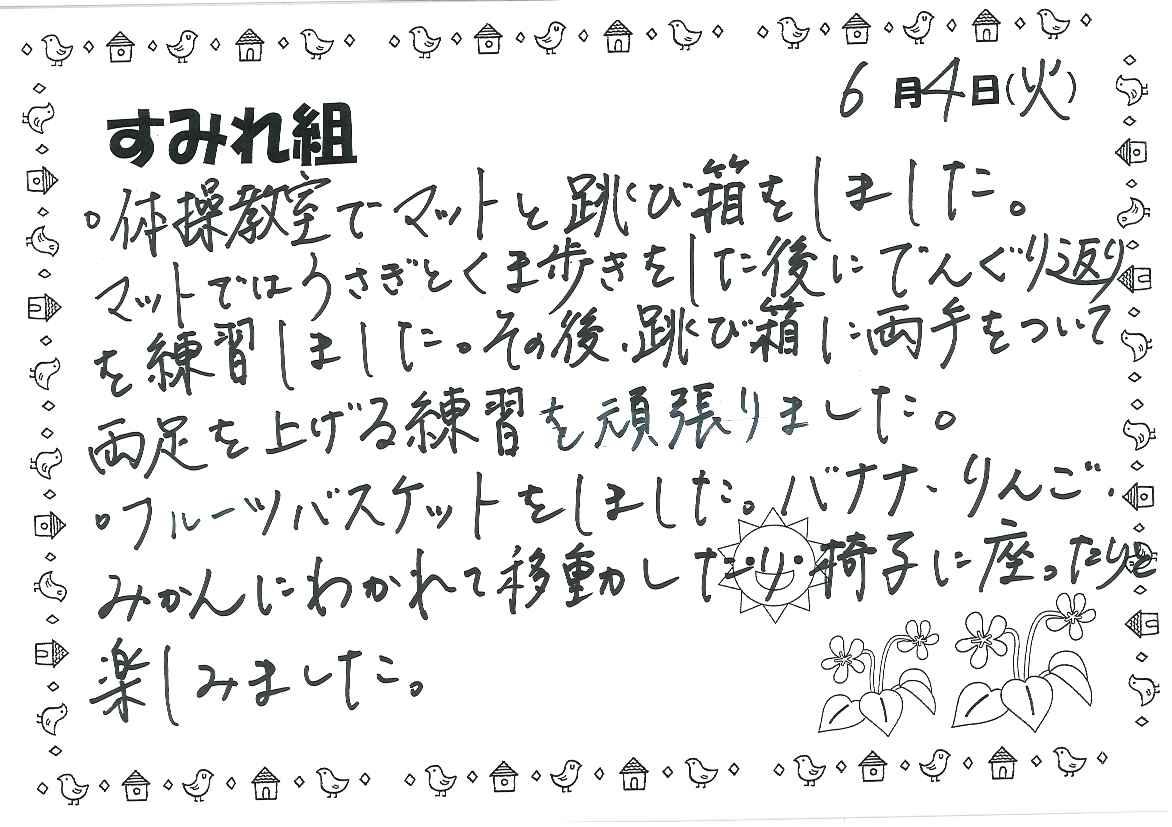 6月4日(火)
すみれ組
。体操教室でマットと跳び箱をしました。
マットではうさぎとくま歩きをした後にでんぐり返り
を練習しました。その後、跳び箱に両手をついて
両足を上げる練習を頑張りました。
。フルーツバスケットをしました。バナナ、りんご、
みかんにわかれて移動したり、椅子に座ったりと
楽しみました。